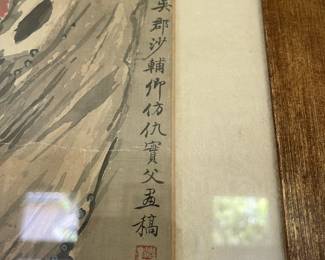 吴郡沙輔卿仿仇實父畫稿